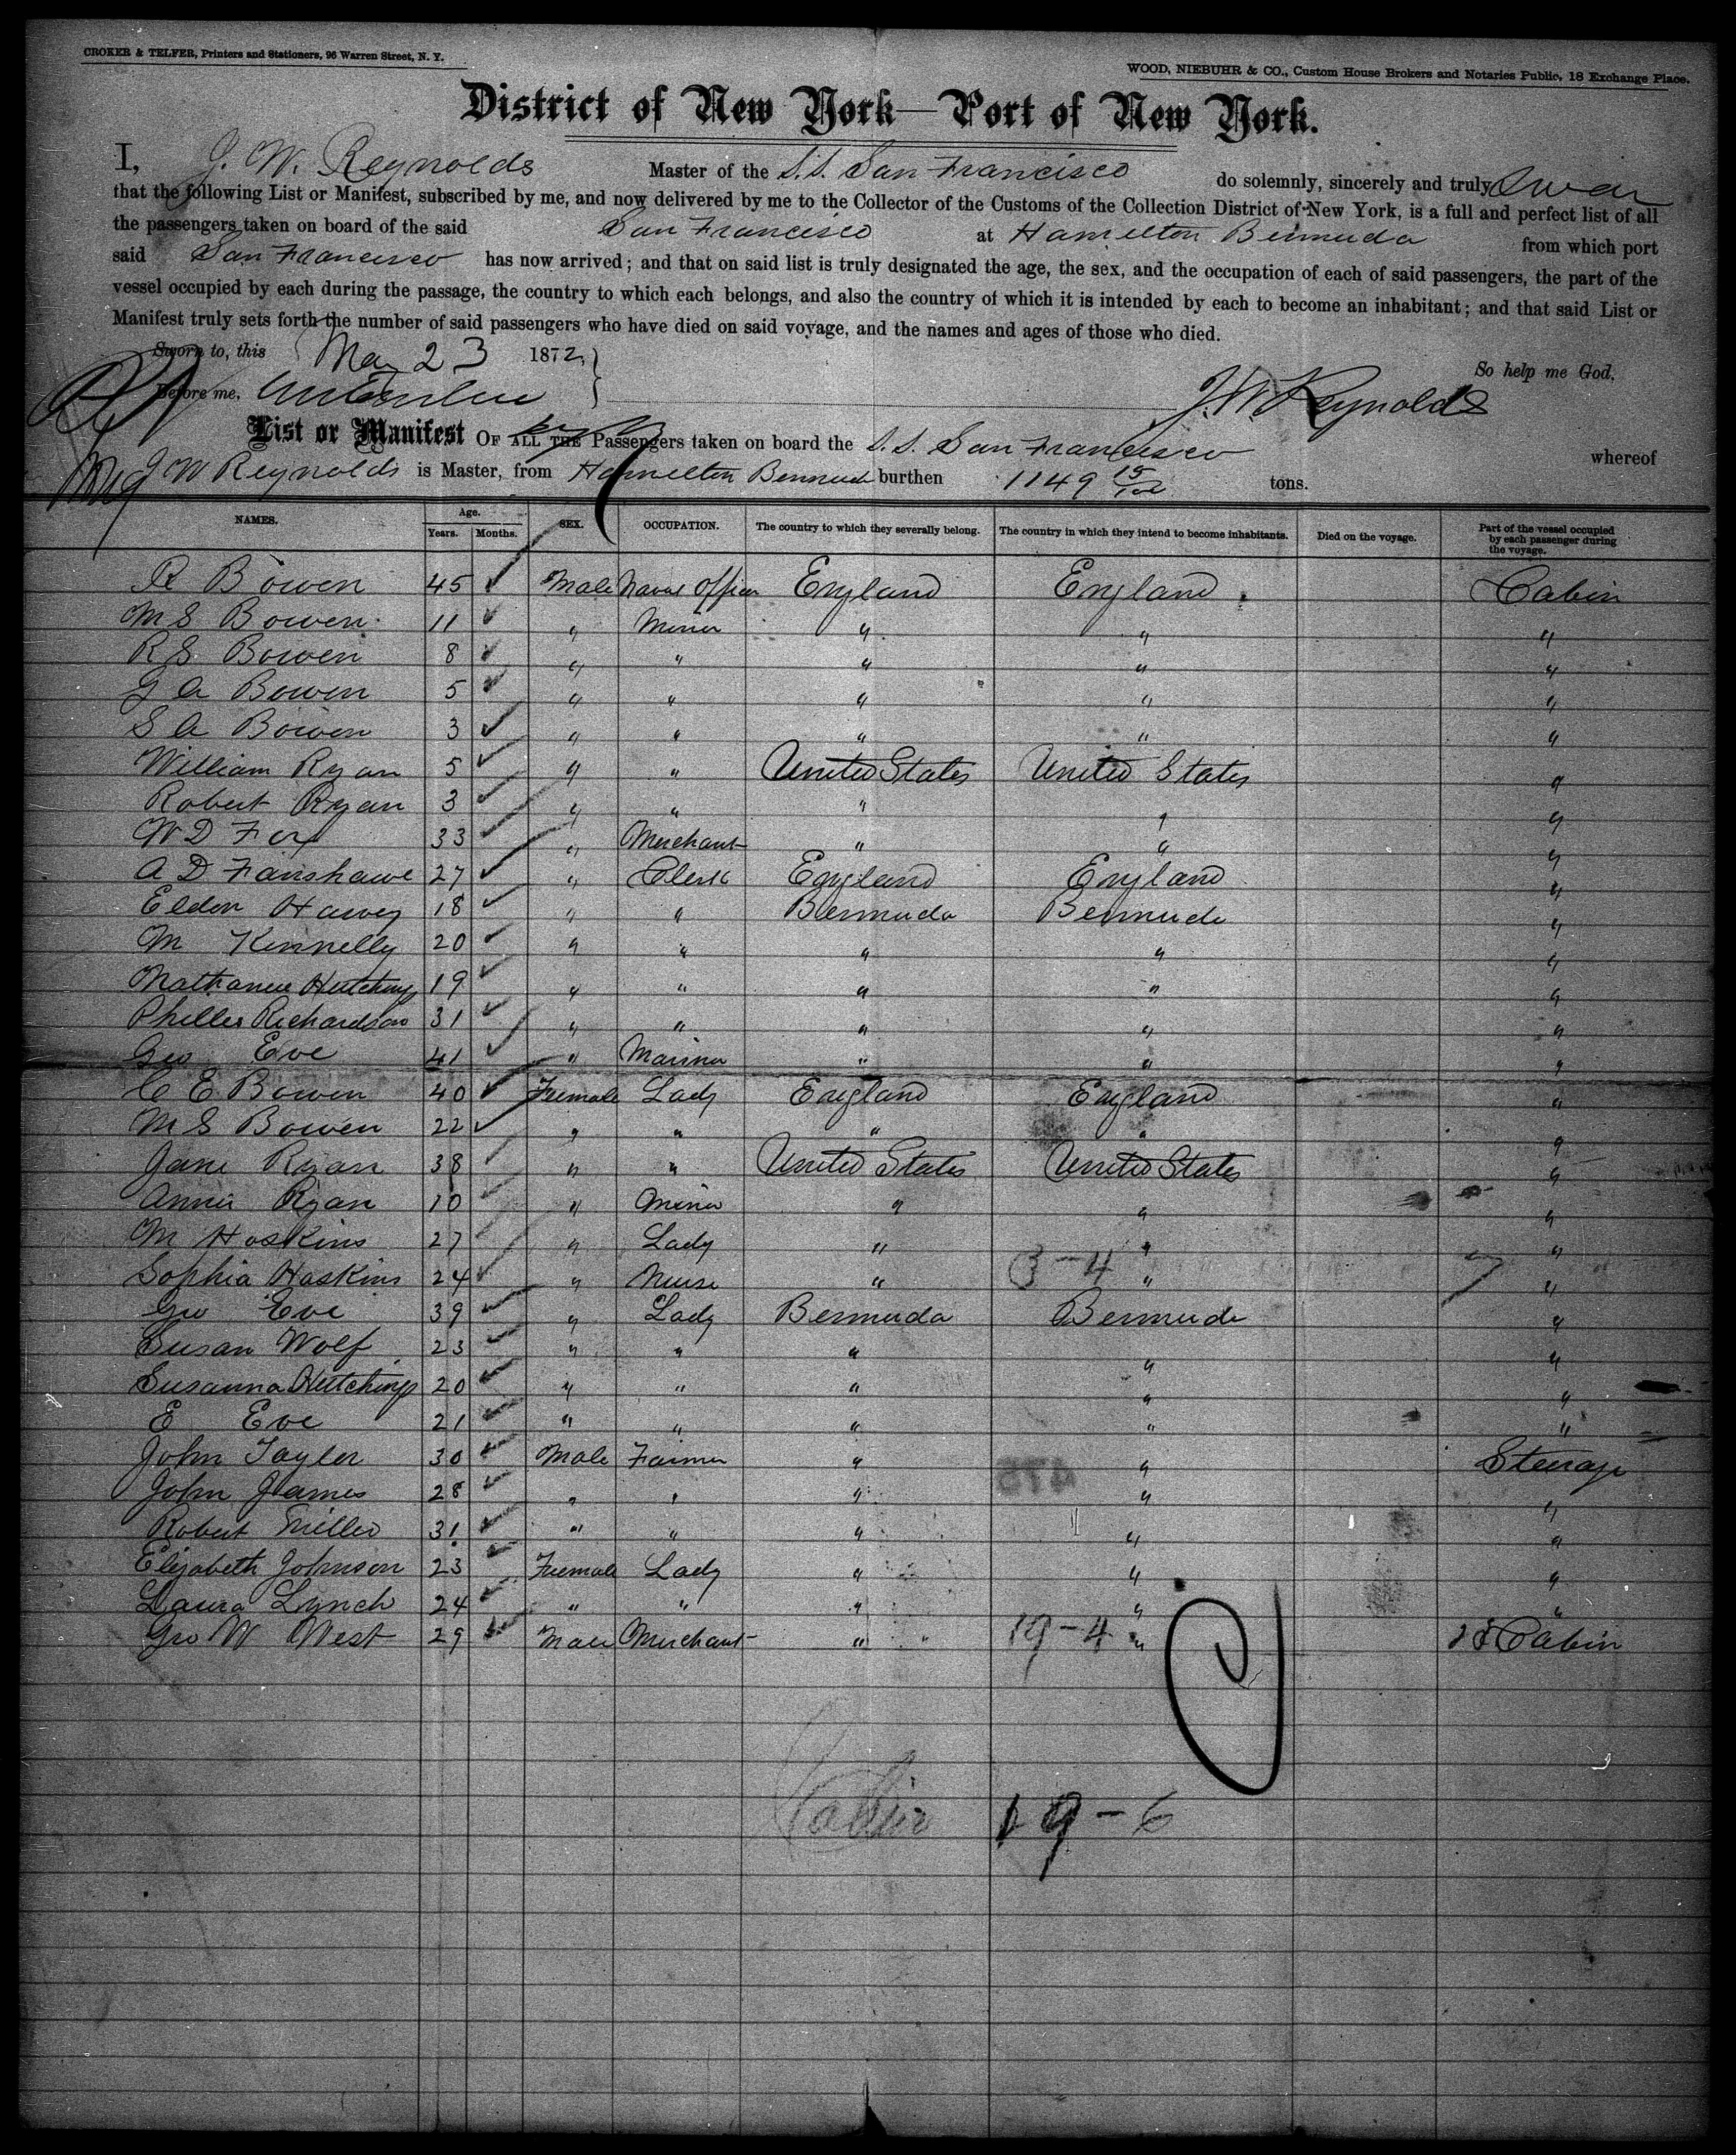 CROKER & TELFER, Printers and Stationers, 96 Warren Street, N. Y.
WOOD, NIEBUHR & CO., Custom House Brokers and Notaries Public, 18 Exchange Place.
District of New York—Port of New York.
I, J. W. Reynolds Master of the S.S. San Francisco do solemnly, sincerely and truly Swear
that the following List or Manifest, subscribed by me, and now delivered by me to the Collector of the Customs of the Collection District of New York, is a full and perfect list of all
the passengers taken on board of the said San Francisco at Hamilton Bermuda from which port
said San Francisco has now arrived; and that on said list is truly designated the age, the sex, and the occupation of each of said passengers, the part of the
vessel occupied by each during the passage, the country to which each belongs, and also the country of which it is intended by each to become an inhabitant; and that said List or
Manifest truly sets forth the number of said passengers who have died on said voyage, and the names and ages of those who died.
Sworn to, this May 23 1872,
So help me God,
Before me, J. W. Reynolds
List or Manifest OF ALL THE Passengers taken on board the S. S. San Francisco whereof
J W Reynolds is Master, from Hamilton Bermuda burthen 1149 15/100 tons.
NAMES. Age. Years. Months. SEX. OCCUPATION. The country to which they severally belong. The country in which they intend to become inhabitants. Died on the voyage. Part of the vessel occupied by each passenger during the voyage.
R Bowen 45 Male Naval Officer England England Cabin
M S Bowen 11 " Minor " " "
R S Bowen 8 " " " " "
G A Bowen 5 " " " " "
S A Bowen 3 " " " " "
William Ryan 5 " " United States United States "
Robert Ryan 3 " " " " "
W D Fox 33 " Merchant " " "
A D Fanshawe 27 " Clerk England England "
Eldon Harvey 18 " " Bermuda Bermuda "
M Kennelly 20 " " " " "
Nathaniel Hutchings 19 " " " " "
Phillis Richardson 31 " " " " "
Geo Eve 41 " Mariner " " "
C E Bowen 40 Female Lady England England "
M S Bowen 22 " " " " "
Jane Ryan 38 " " United States United States "
Annie Ryan 10 " Minor " " "
M Hoskins 27 " Lady " " "
Sophia Haskins 24 " Nurse " 3-4 " "
Geo Eve 39 " Lady Bermuda Bermuda "
Susan Wolf 23 " " " " "
Susanna Hutchings 20 " " " " "
E Eve 21 " " " " "
John Tayler 30 Male Farmer " " Steerage
John James 28 " " " " "
Robert Miller 31 " " " " "
Elizabeth Johnson 23 Female Lady " " "
Laura Lynch 24 " " " " "
Geo W West 29 Male Merchant " 19-4 " Cabin
Cabin 19-6